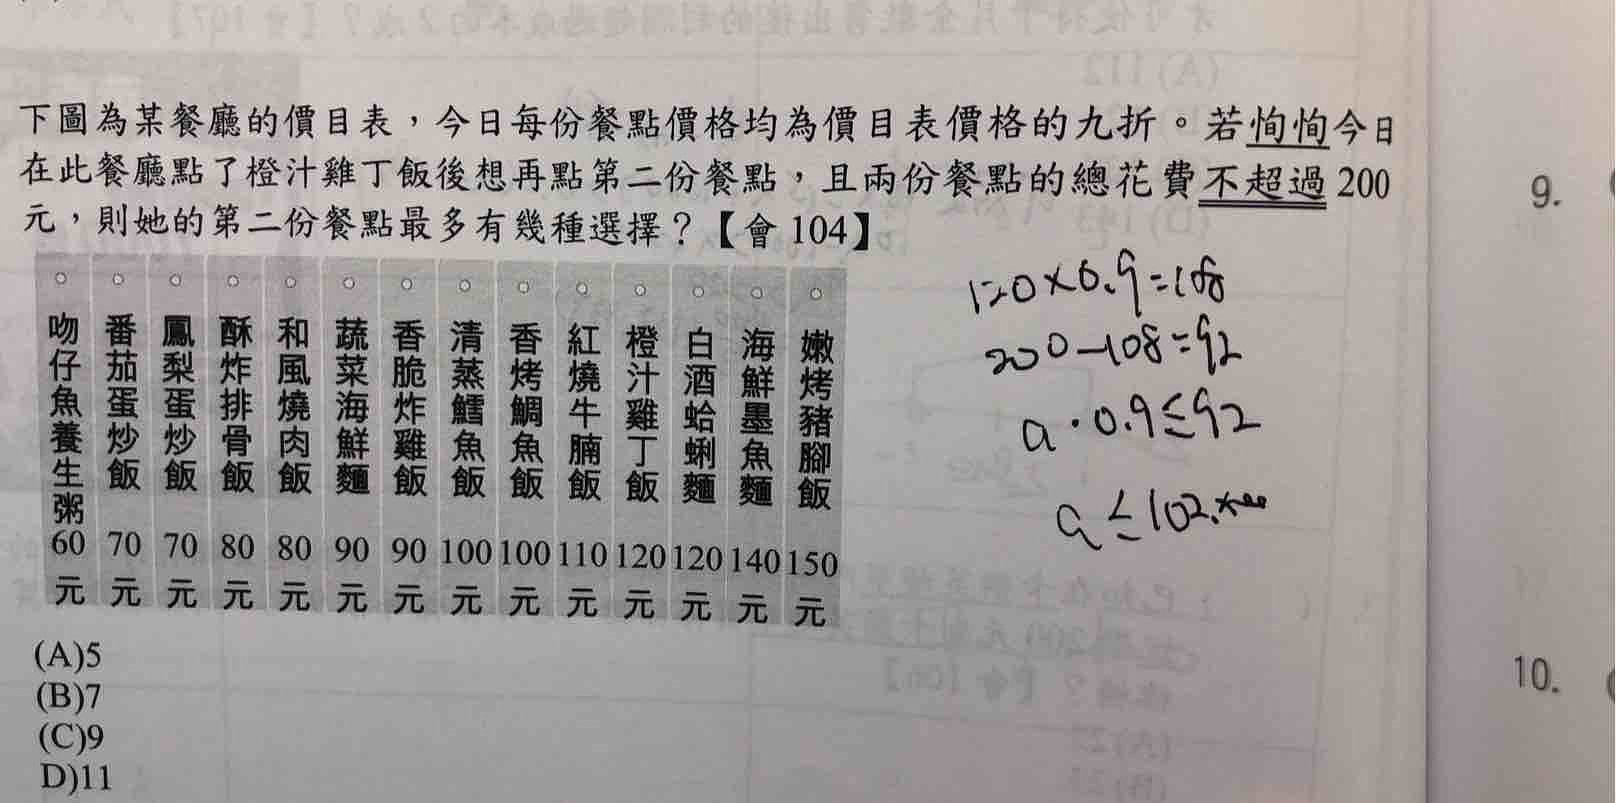 下圖為某餐廳的價目表，今日每份餐點價格均為價目表價格的九折。若恂恂今日
在此餐廳點了橙汁雞丁飯後想再點第二份餐點，且兩份餐點的總花費不超過200
元，則她的第二份餐點最多有幾種選擇？【會 104】
吻仔魚養生粥60元
番茄蛋炒飯70元
鳳梨蛋炒飯70元
酥炸排骨飯80元
和風燒肉飯80元
蔬菜海鮮麵90元
香脆炸雞飯90元
清蒸鱈魚飯100元
香烤鯛魚飯100元
紅燒牛腩飯110元
橙汁雞丁飯120元
白酒蛤蜊麵120元
海鮮墨魚麵140元
嫩烤豬腳飯150元
(A)5
(B)7
(C)9
D)11
120×0.9=108
200-108=92
a·0.9≤92
a≤102.
9.
10.